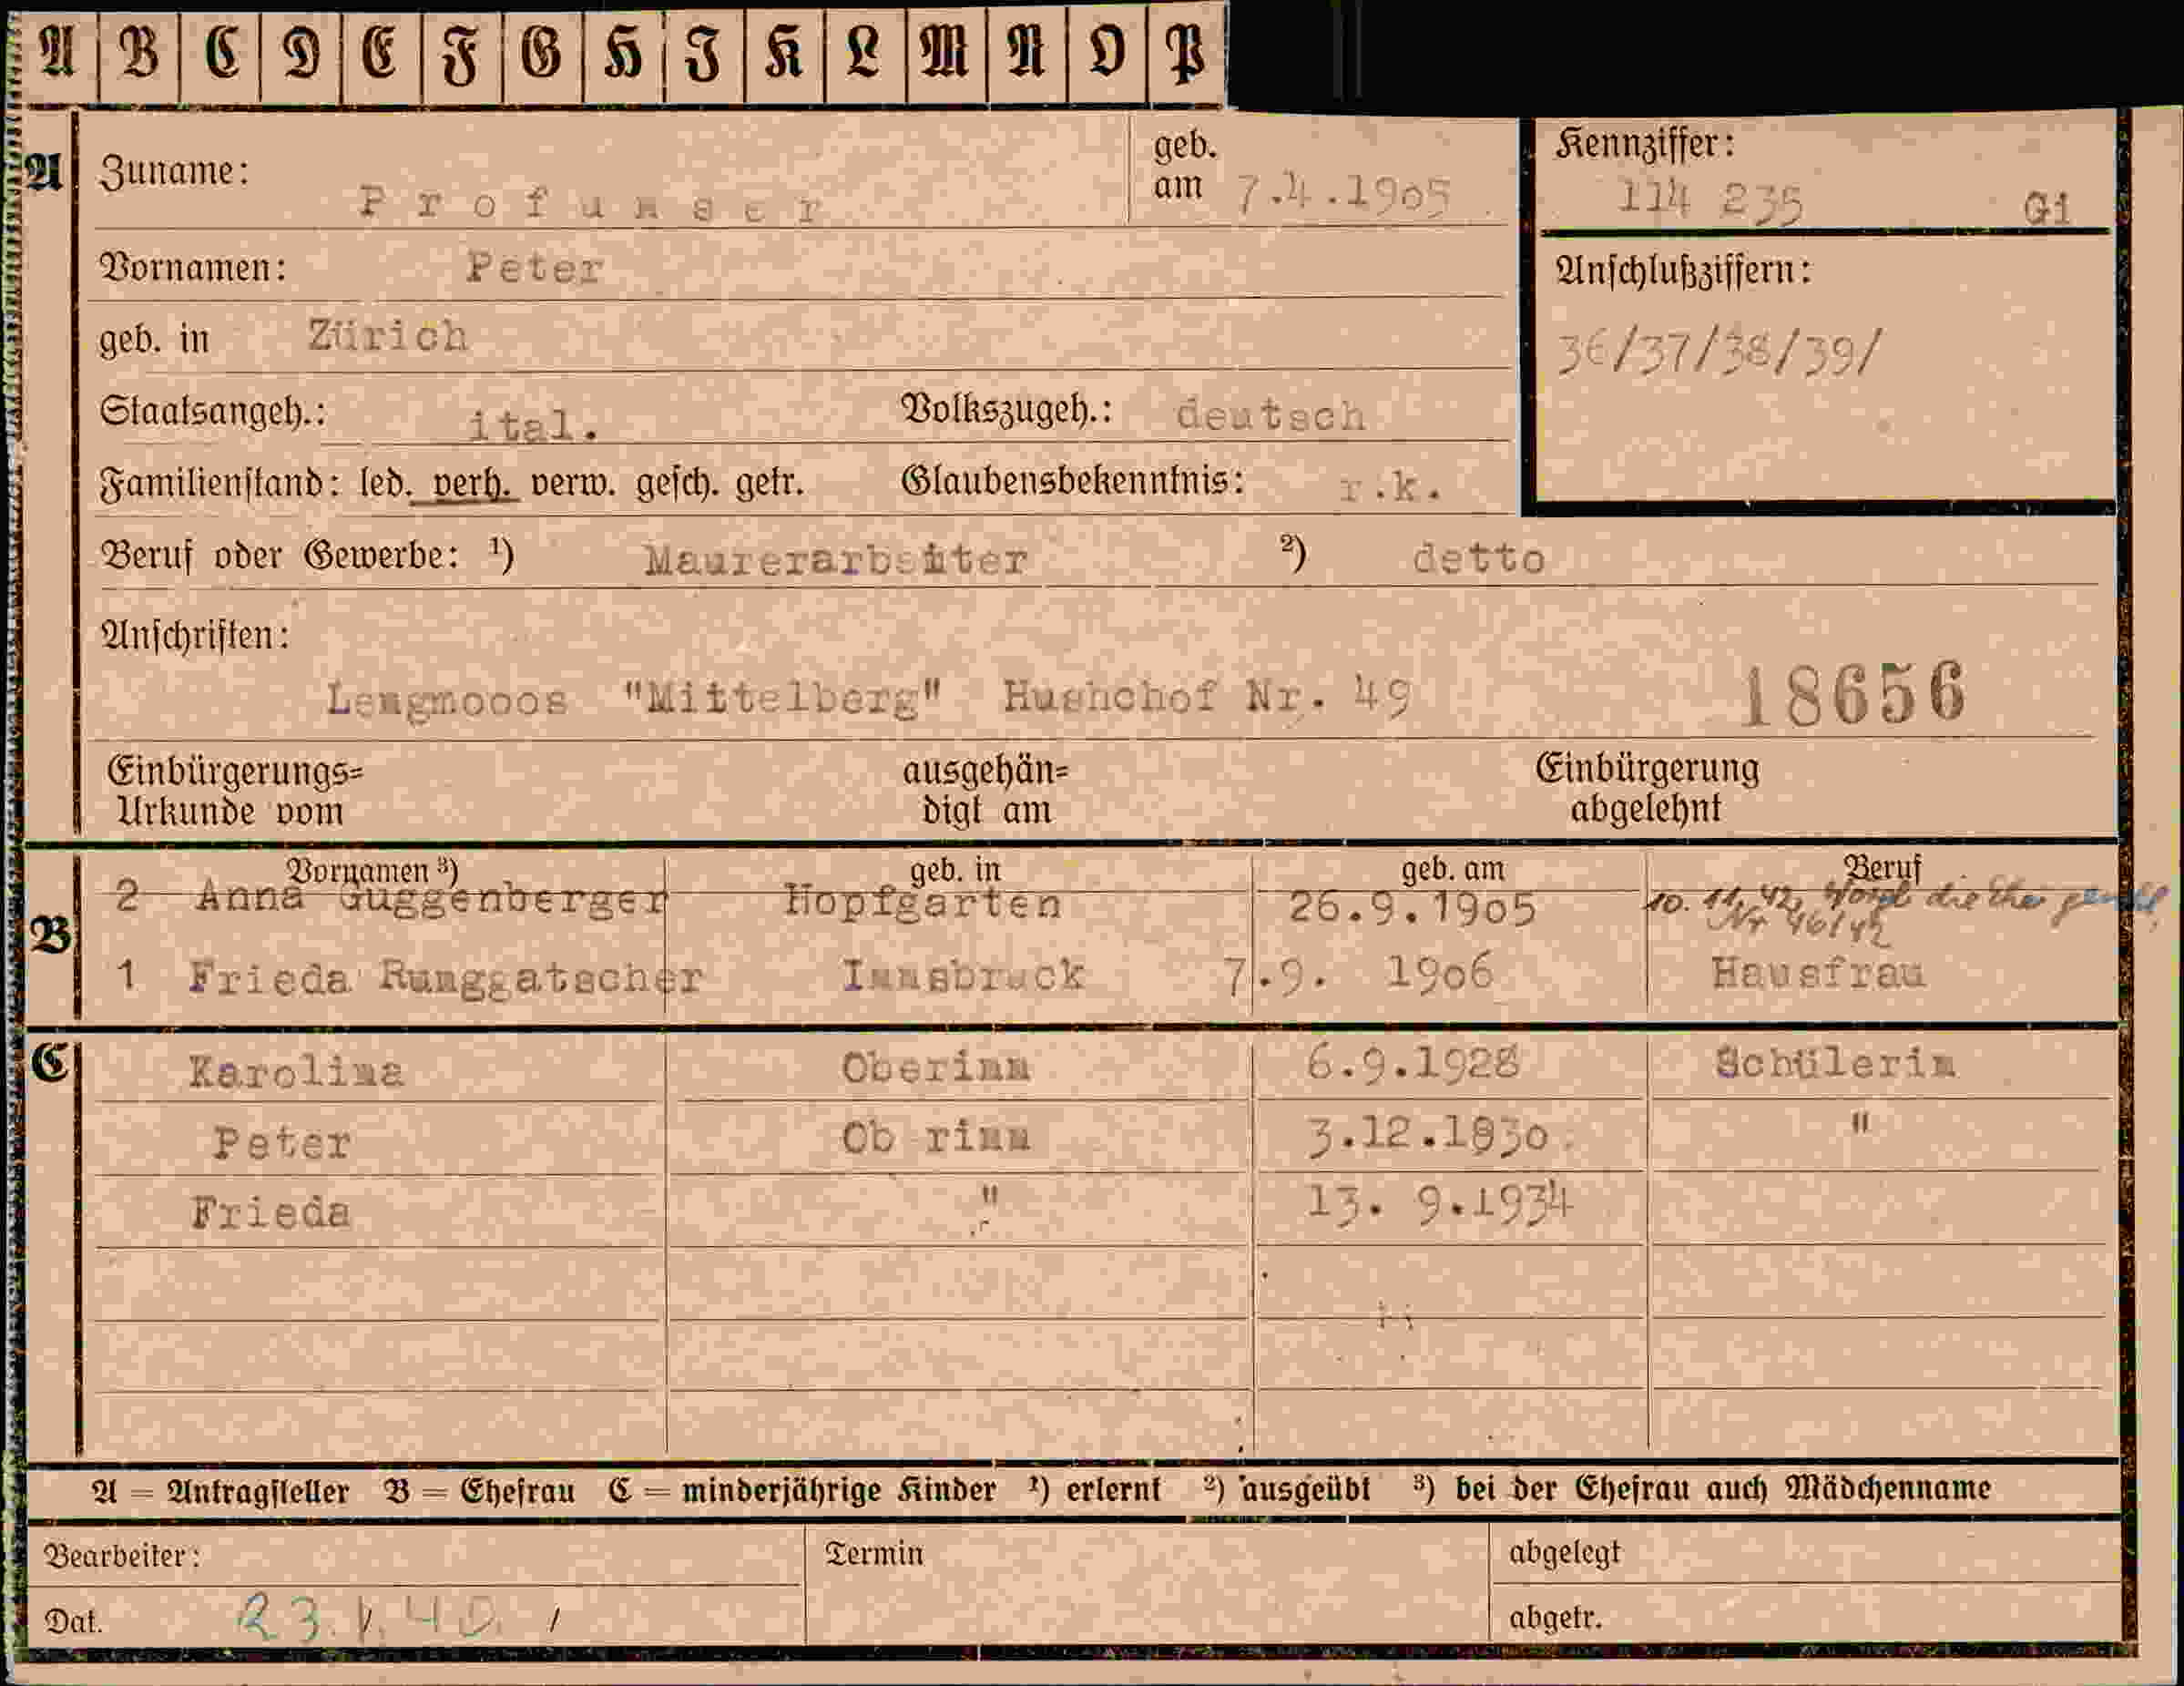 A B C D E F G H I K L M N O P
A Zuname: Profunser geb. am 7.4.1905 Kennziffer: 114 235 Gi
Vornamen: Peter Anschlußziffern:
geb. in Zürich 36/37/38/39/
Staatsangeh.: ital. Volkszugeh.: deutsch
Familienstand: led. verh. verw. gesch. getr. Glaubensbekenntnis: r.k.
Beruf oder Gewerbe: ¹) Maurerarbeiter ²) detto
Anschriften:
Lengmooos "Mittelberg" Nr. 49 18656
Einbürgerungs= ausgehän= Einbürgerung
Urkunde vom digt am abgelehnt
Vornamen ³) geb. in geb. am Beruf
B 2 Anna Guggenberger Hopfgarten 26.9.1905 10. 11. 42,
Nr 46/42
1 Frieda Runggatscher Innsbruck 7.9. 1906 Hausfrau
C Karolina Oberinn 6.9.1928 Schülerin
Peter Ob rinn 3.12.1930 "
Frieda " 13. 9.1934
A = Antragsteller B = Ehefrau C = minderjährige Kinder ¹) erlernt ²) ausgeübt ³) bei der Ehefrau auch Mädchenname
Bearbeiter: Termin abgelegt
Dat. 23.1.40. / abgetr.